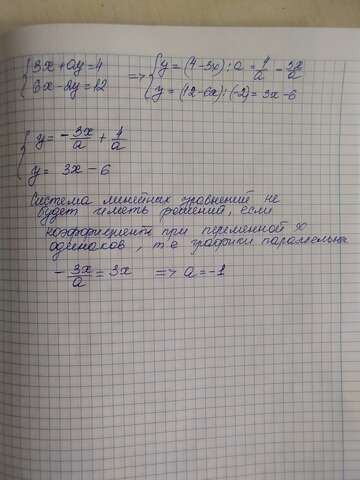 {3x+ay=4 => {y=(4-3x):a = 4/a - 3x/a
{6x-2y=12 {y=(12-6x):(-2)=3x-6
{y= -3x/a + 4/a
{y= 3x-6
Система линейных уравнений не
будет иметь решений, если
коэффициенты при переменной x
одинаков, т.е графики параллельны
-3x/a = 3x => a=-1